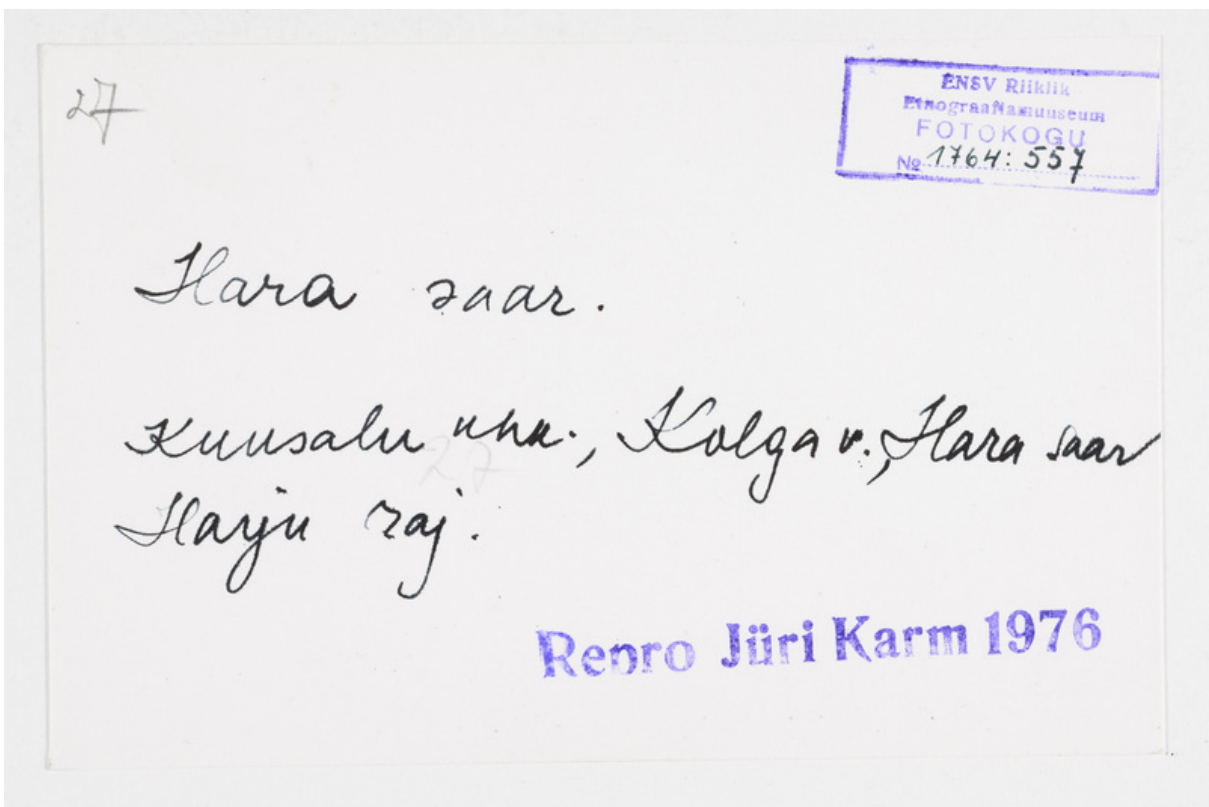 27
ENSV Riiklik
Etnograafiamuuseum
FOTOKOGU
№ 1764: 557
Hara saar.
Kuusalu khk., Kolga v., Hara saar
27
Harju raj.
Repro Jüri Karm 1976